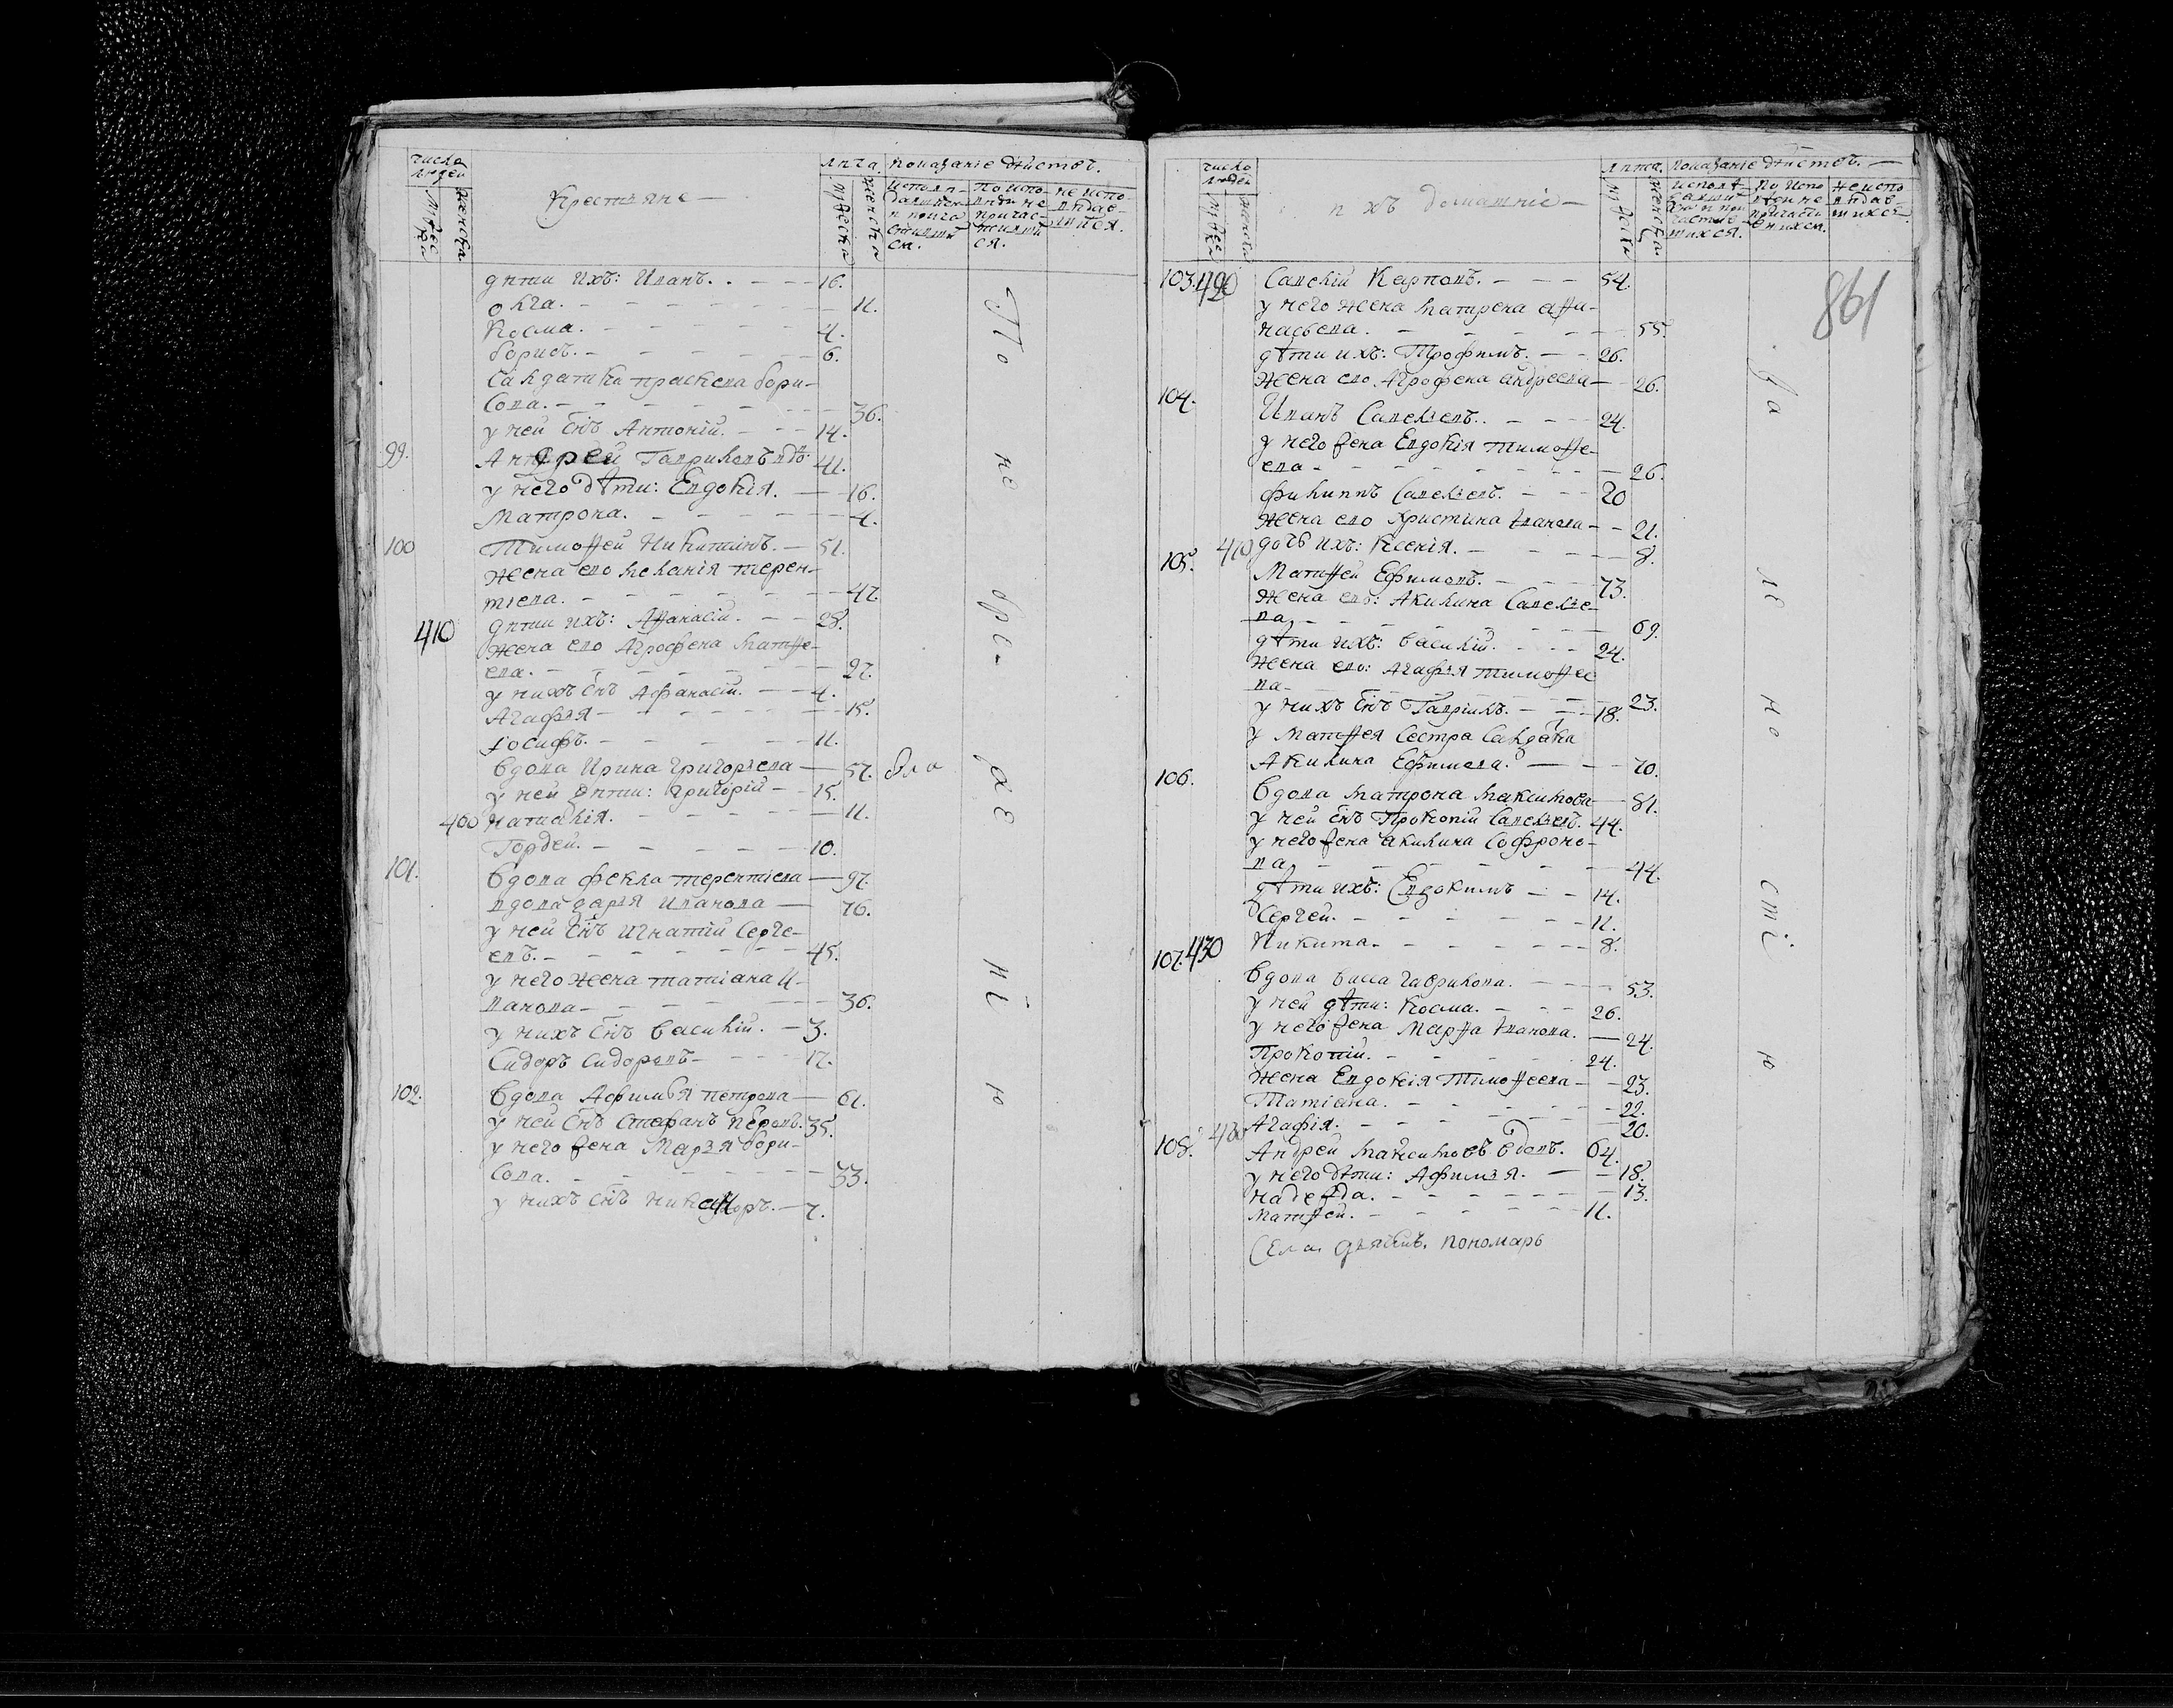 число людей
Мужес ка
Женска
Крестьяне —
лѣта.
мужеска
женска
Показанiе дѣйствъ.
исповѣ-
давшися
и прича
стившiи
ся.
По испо-
вѣди не
причас-
тившiи
ся.
не испо-
вѣдав-
шiися.
дѣти ихъ: Иванъ. 16.
олга. 11.
Косма. 4.
борисъ. 6.
Салдатка праскева бори-
сова. 36.
у ней снъ Антонiй. 14.
99. Андрей Гавриловъ вдв: 41.
у него дѣти: Евдокiя. 16.
Матрона. 4.
100 Тимоѳей Никитинъ. 51.
Жена ево Меланiя терен-
тiева. 47.
410 дѣти ихъ: Аѳанасiй. 28.
Жена ево Агрофена Матѳе-
ева. 27.
у нихъ снъ Афанасiй. 4.
Агафья 15.
iосифъ. 11.
Вдова Ирина григорьева 57.
у ней дѣти: григорiй 15.
400 наталiя. 11.
Гордей. 10.
101. Вдова фекла терентiева 97.
вдова дарья Иванова 76.
у ней снъ игнатiй Серге-
евъ. 45.
у него жена татiана И-
ванова 36.
у нихъ снъ василiй. 3.
Сидоръ Сидоровъ 17.
102. Вдова Афимья петрова 61.
у ней снъ Стефанъ Перовъ. 35.
у него жена Марья бори-
сова. 33.
у нихъ снъ никаноръ. 7.
По не бре- же нi ю
число людей
Мужес
женска
ихъ домашнiе —
лѣта.
мужеска
женска
Показанiе дѣйствъ. —
По испо
вѣди не
причасти
вшихся.
не испо
вѣдав-
шихся.
861
103. 420 Савелiй Карповъ. 54.
у него жена матрена аѳа-
насьева. 55.
дѣти ихъ: Трофимъ. 26.
Жена ево Агрофена андреева 26.
104. Иванъ Савельевъ. 24.
у него жена Евдокiя тимоѳе-
ева 26.
филиппъ Савельевъ. 20
Жена ево Христина Iванова 21.
410 дочь ихъ: Ксенiя. 8.
105. Матѳей Ефимовъ. 73.
Жена евo: Акилина Савелье-
ва. 69.
дѣти ихъ: василiй. 24.
Жена ево: Агафья тимоѳее
ва 23.
у нихъ снъ Гаврiилъ. 18.
у Матѳея Сестра Салдатка
Акилина Ефимова. 70.
106. Вдова матрона максимова 81.
у ней снъ Прокопiй Савельевъ. 44.
у него жена акилина Софроно-
ва 44.
дѣти ихъ: Евдокимъ 14.
Сергей. 11.
107. 430 Никита. 8.
Вдова васса гаврилова. 53.
у ней дѣти: Косма. 26.
у него жена Марѳа Iванова. 24.
Прокопiй. 24.
Жена Евдокiя Тимоѳеева 23.
Татiана. 22.
420 Агафiя. 20.
108. Андрей максимовъ вдовъ. 64.
у него дѣти: Афимья. 18.
надежда. 13.
матѳей. 11.
Села дьячикъ. пономарь